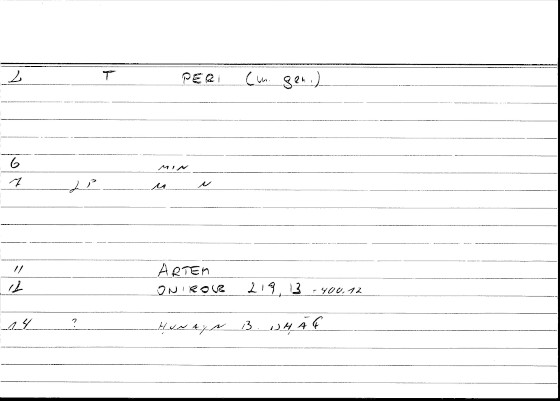 2 T PERI (m. gen.)
6 MIN
7 LP M N
11 ARTEM
12 ONIROCR 219,13 - 400.12
14 ? ḤUNAYN B. ISḤĀQ